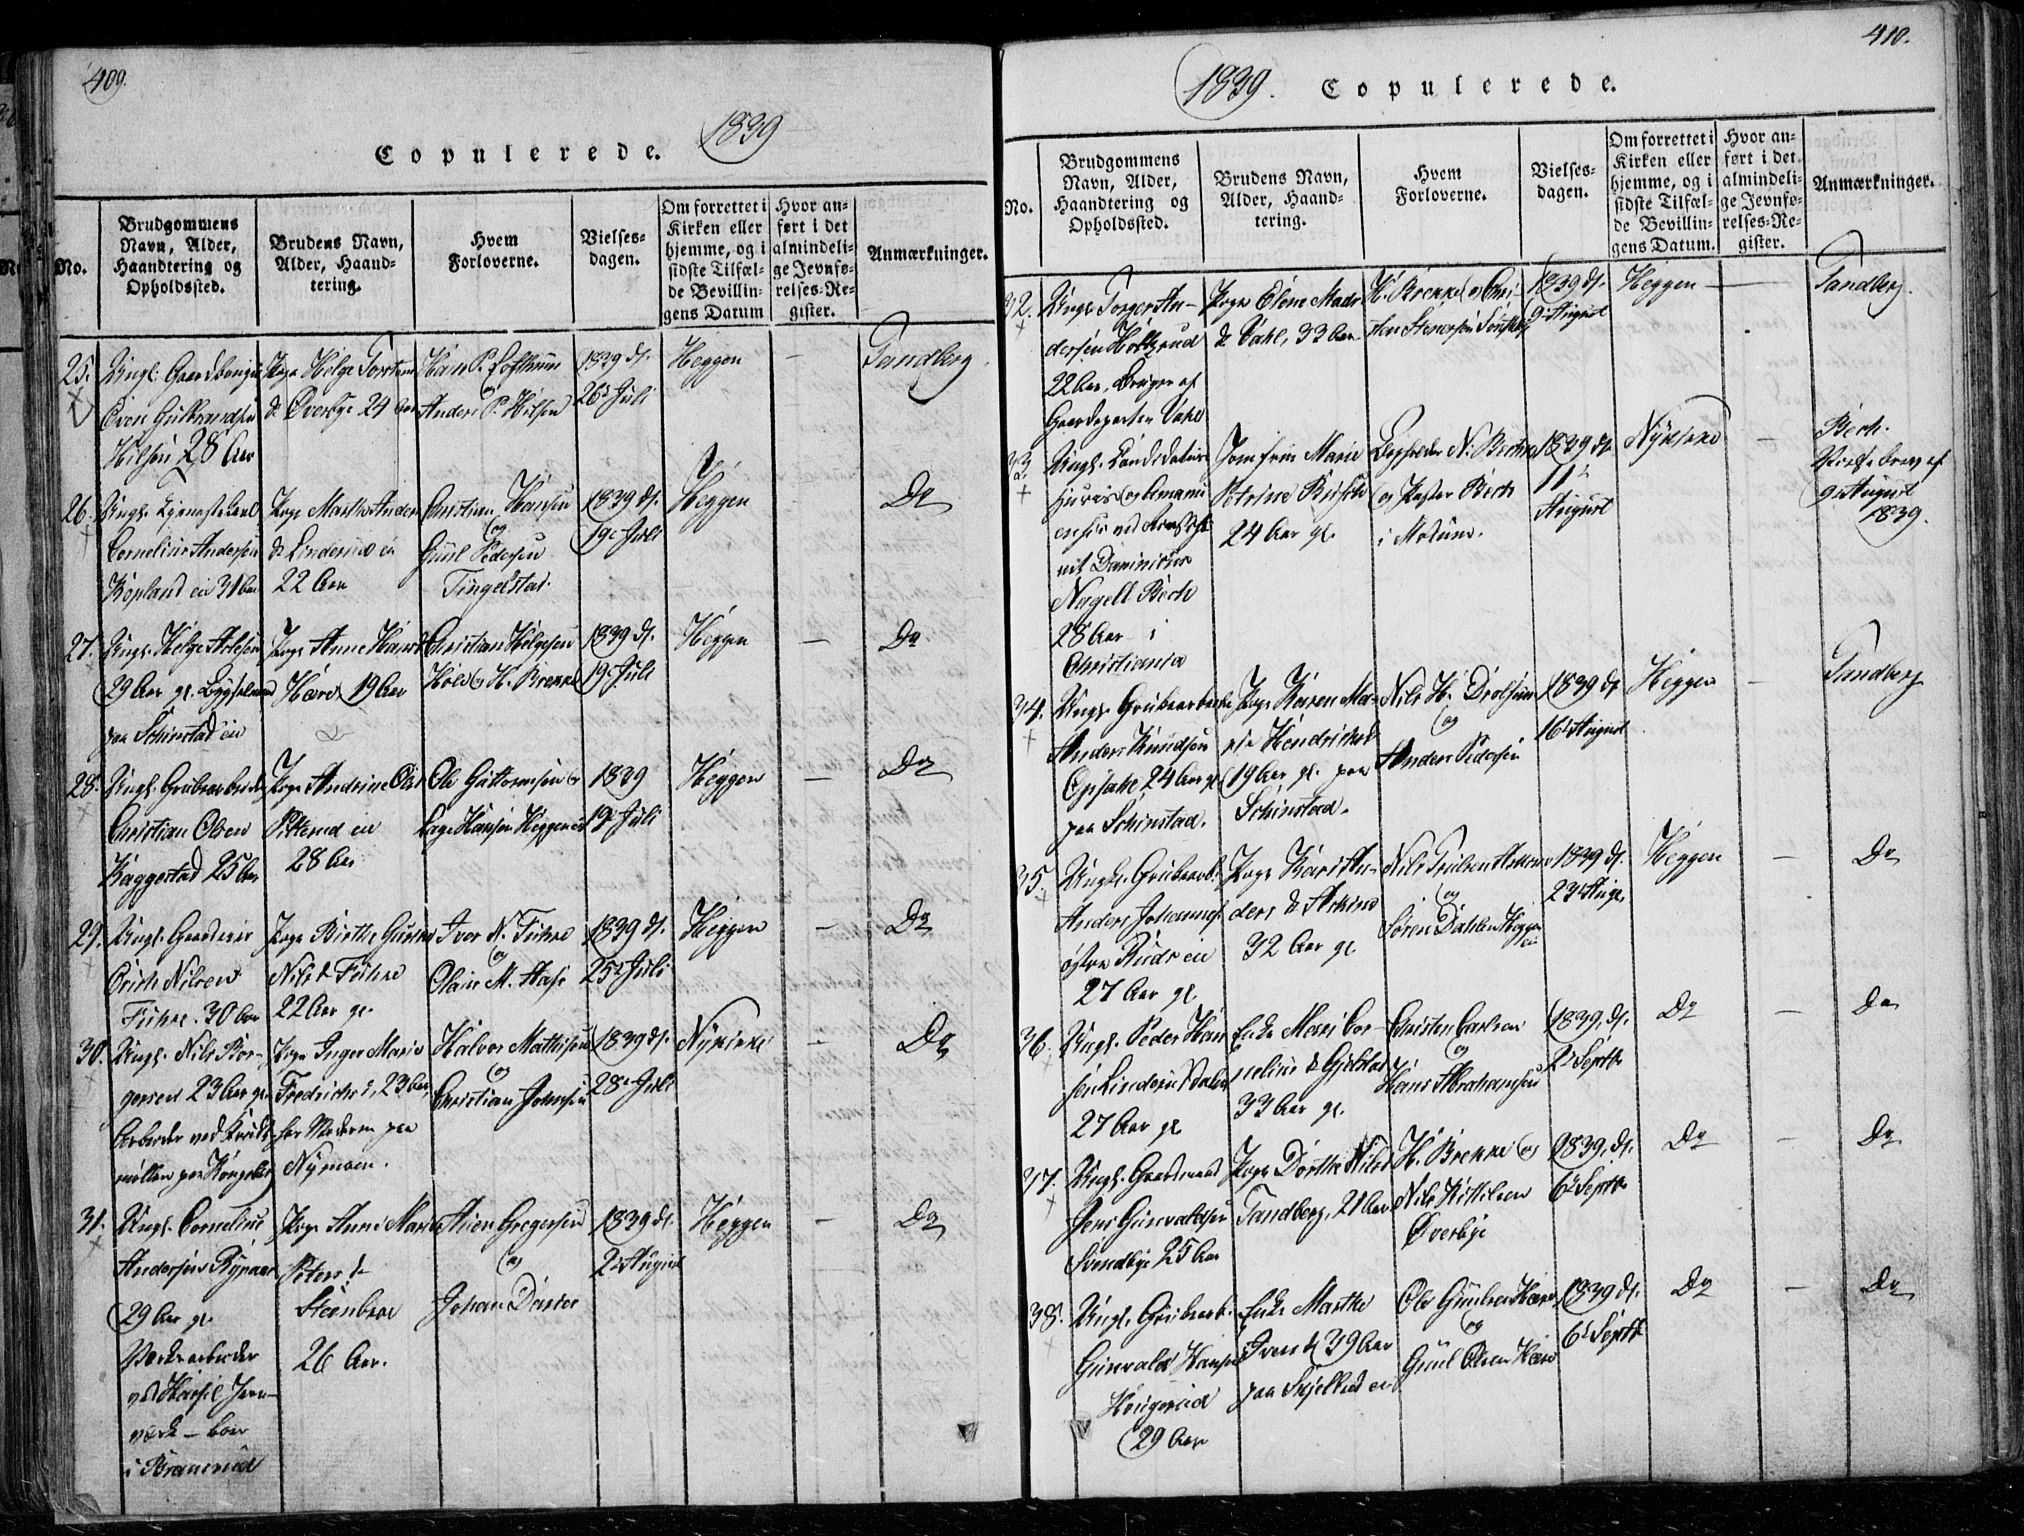 409.
Copulerede. 1839
No.
Brudgommens
Navn, Alder,
Haandtering og
Opholdssted.
Brudens Navn,
Alder, Haand-
tering.
Hvem
Forloverne.
Vielses-
dagen.
Om forrettet i
Kirken eller
hjemme, og i
sidste Tilfæl-
de Bevillin-
gens Datum
Hvor an-
ført i det
almindeli-
ge Jevnfø-
relses-Re-
gister.
Anmærkninger.
25.
Ungk. Gaardbruger
Even Gulbrandsen
Hilsen 28 Aar
Pige Helge Torstens
d. Överbye 24 Aar
Hans P. Lofthuus
og
Anders P. Hilsen
1839 d.
26 Juli
Heggen
—
Tandberg.
26.
Ungk.
Cornelius Andersen
Kopland ei 31 Aar
Pige Marthe Anders
d. Linderud ei
22 Aar
Christian Hansen
og
Guul Pedersen
Tingelstad.
1839 d.
19 Juli
Heggen
—
Do
27.
Ungk. Helge Atlesen
29 Aar gl.
paa Schinstad ei
Pige Anne Hansd
Hære 19 Aar
Christian Helgesen
Hole og H. Brekke
1839 d.
19 Juli
Heggen
—
Do
28.
Ungk. Grubearbeider
Christian Olsen
Kaggestad 25 Aar
Pige Andrine Olsd
Pitterud ei
28 Aar
Ole Guttormsen og
Lage Hansen Heggen ei
1839
19 Juli
Heggen
—
Do
29.
Ungk. Gaardeier
Erich Nilsen
Fuhre. 30 Aar
Pige Birthe Gurine
Nils d. Fuhre
22 Aar gl.
Iver N. Fuhre
og
Olaus M. Aase
1839 d.
25 Juli
Heggen
—
Do
30.
Ungk. Nils Bor-
gersen 23 Aar gl.
Arbeider ved Krudt-
møllen paa Kongsberg
Pige Inger Marie
Fredrichs d, 23 Aar,
hos Moderen paa
Nymoen.
Halvor Mathisen
og
Christian Johnsen
1839 d.
28 Juli
Nykirke
—
Do
31.
Ungk. Cornelius
Andersen Rypaas
29 Aar gl.
Verksarbeider
ved Hassel Jern-
værk – boer
i Braanerud
Pige Anne Marie
Peters d.
Steenbraa
26 Aar.
Aien Gregersen
og
Johan Darre
1839 d.
2 August
Heggen
—
Do
410.
1839. Copulerede.
No.
Brudgommens
Navn, Alder,
Haandtering og
Opholdssted.
Brudens Navn,
Alder, Haand-
tering.
Hvem
Forloverne.
Vielses-
dagen.
Om forrettet i
Kirken eller
hjemme, og i
sidste Tilfæl-
de Bevillin-
gens Datum.
Hvor an-
ført i det
almindeli-
ge Jevnfø-
relses-Re-
gister.
Anmærkninger.
32.
Ungk. Torger An-
dersen Holterud
22 Aar, Bruger af
Gaardeparten Vahl
Pige Elene Mads
d. Vahl, 33 Aar
H. Brekke og Chri-
sten Steensen
1839 d.
9 August
Heggen
—
Tandberg.
33.
Ungk. Candidatus
juris og Amanu-
ensis ved
Nagell Bech
28 Aar i
Christiania
Jomfru Marie
Petrine Busch
24 Aar gl.
N. Bech
og Pastor Bech
i Modum.
1839 d.
11
August
Nykirke
—
Bech.
brev af
9 August
1839.
34.
Ungk. Grubearbeider
Anders Knudsen
Opsahl 24 Aar gl
paa Schinstad.
Pige Karen Ma-
rie Hendrichsd
19 Aar gl. paa
Schinstad.
Nils H. Drolsum
og
Anders Pedersen
1839 d.
16 August
Heggen
—
Tandberg
35.
Ungk. Grubearb.
Anders Johannes.
østre Rud ei
27 Aar gl
Pige Kari An-
ders d.
32 Aar gl
Nils Trulsen
og
Søren Dahlen Heggen
ei
1839 d.
23 Aug.
Heggen
—
Do
36.
Ungk. Peder Han
sen Linderudsdalen
27 Aar gl
Enke Mari Cor-
nelius d.
33 Aar gl.
Christen Carlsen
og
Hans Abrahamsen
1839, d.
2 Septbr
Do
—
Do
37.
Ungk. Gaardmand
Jens Gunvaldsen
Svendbye 25 Aar
Pige Dorthe Nilsd
Tandberg, 21 Aar
H. Brekke og
Nils Kittilsen
Øverbye
1839, d.
6 Septbr
Do
—
Do
38.
Ungk. Grubearb.
Gunvald Hansen
Hougerud
29 Aar
Enke Marthe
Ivers d 39 Aar
paa Skjellud ei
Ole Guulsen Hære
og
Guul Olsen Hære
1839 d.
6 Septbr
Do
—
Do